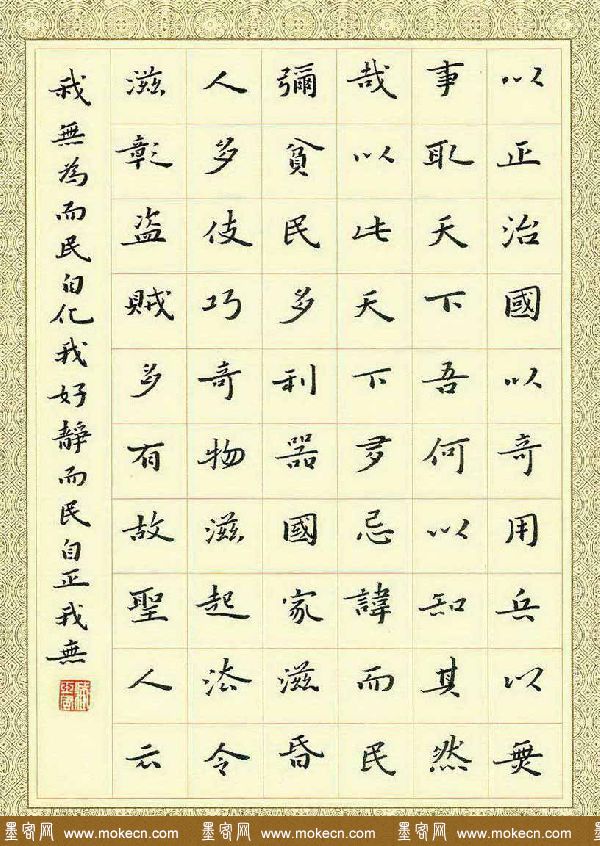 以正治國以奇用兵以無
事取天下吾何以知其然
哉以此天下多忌諱而民
彌貧民多利器國家滋昏
人多伎巧奇物滋起法令
滋彰盜賊多有故聖人云
我無為而民自化我好靜而民自正我無
墨客网 www.mokecn.com 墨客网 www.mokecn.com 墨客网 www.mokecn.com